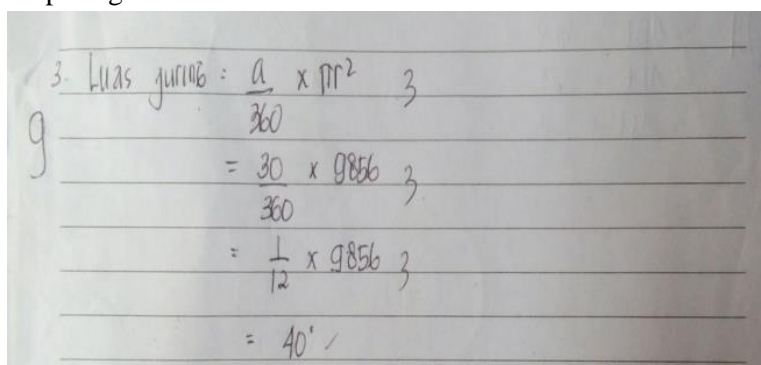 3. Luas juring = a/360 x πr² 3
9
= 30/360 x 9856 3
= 1/12 x 9856 3
= 40°